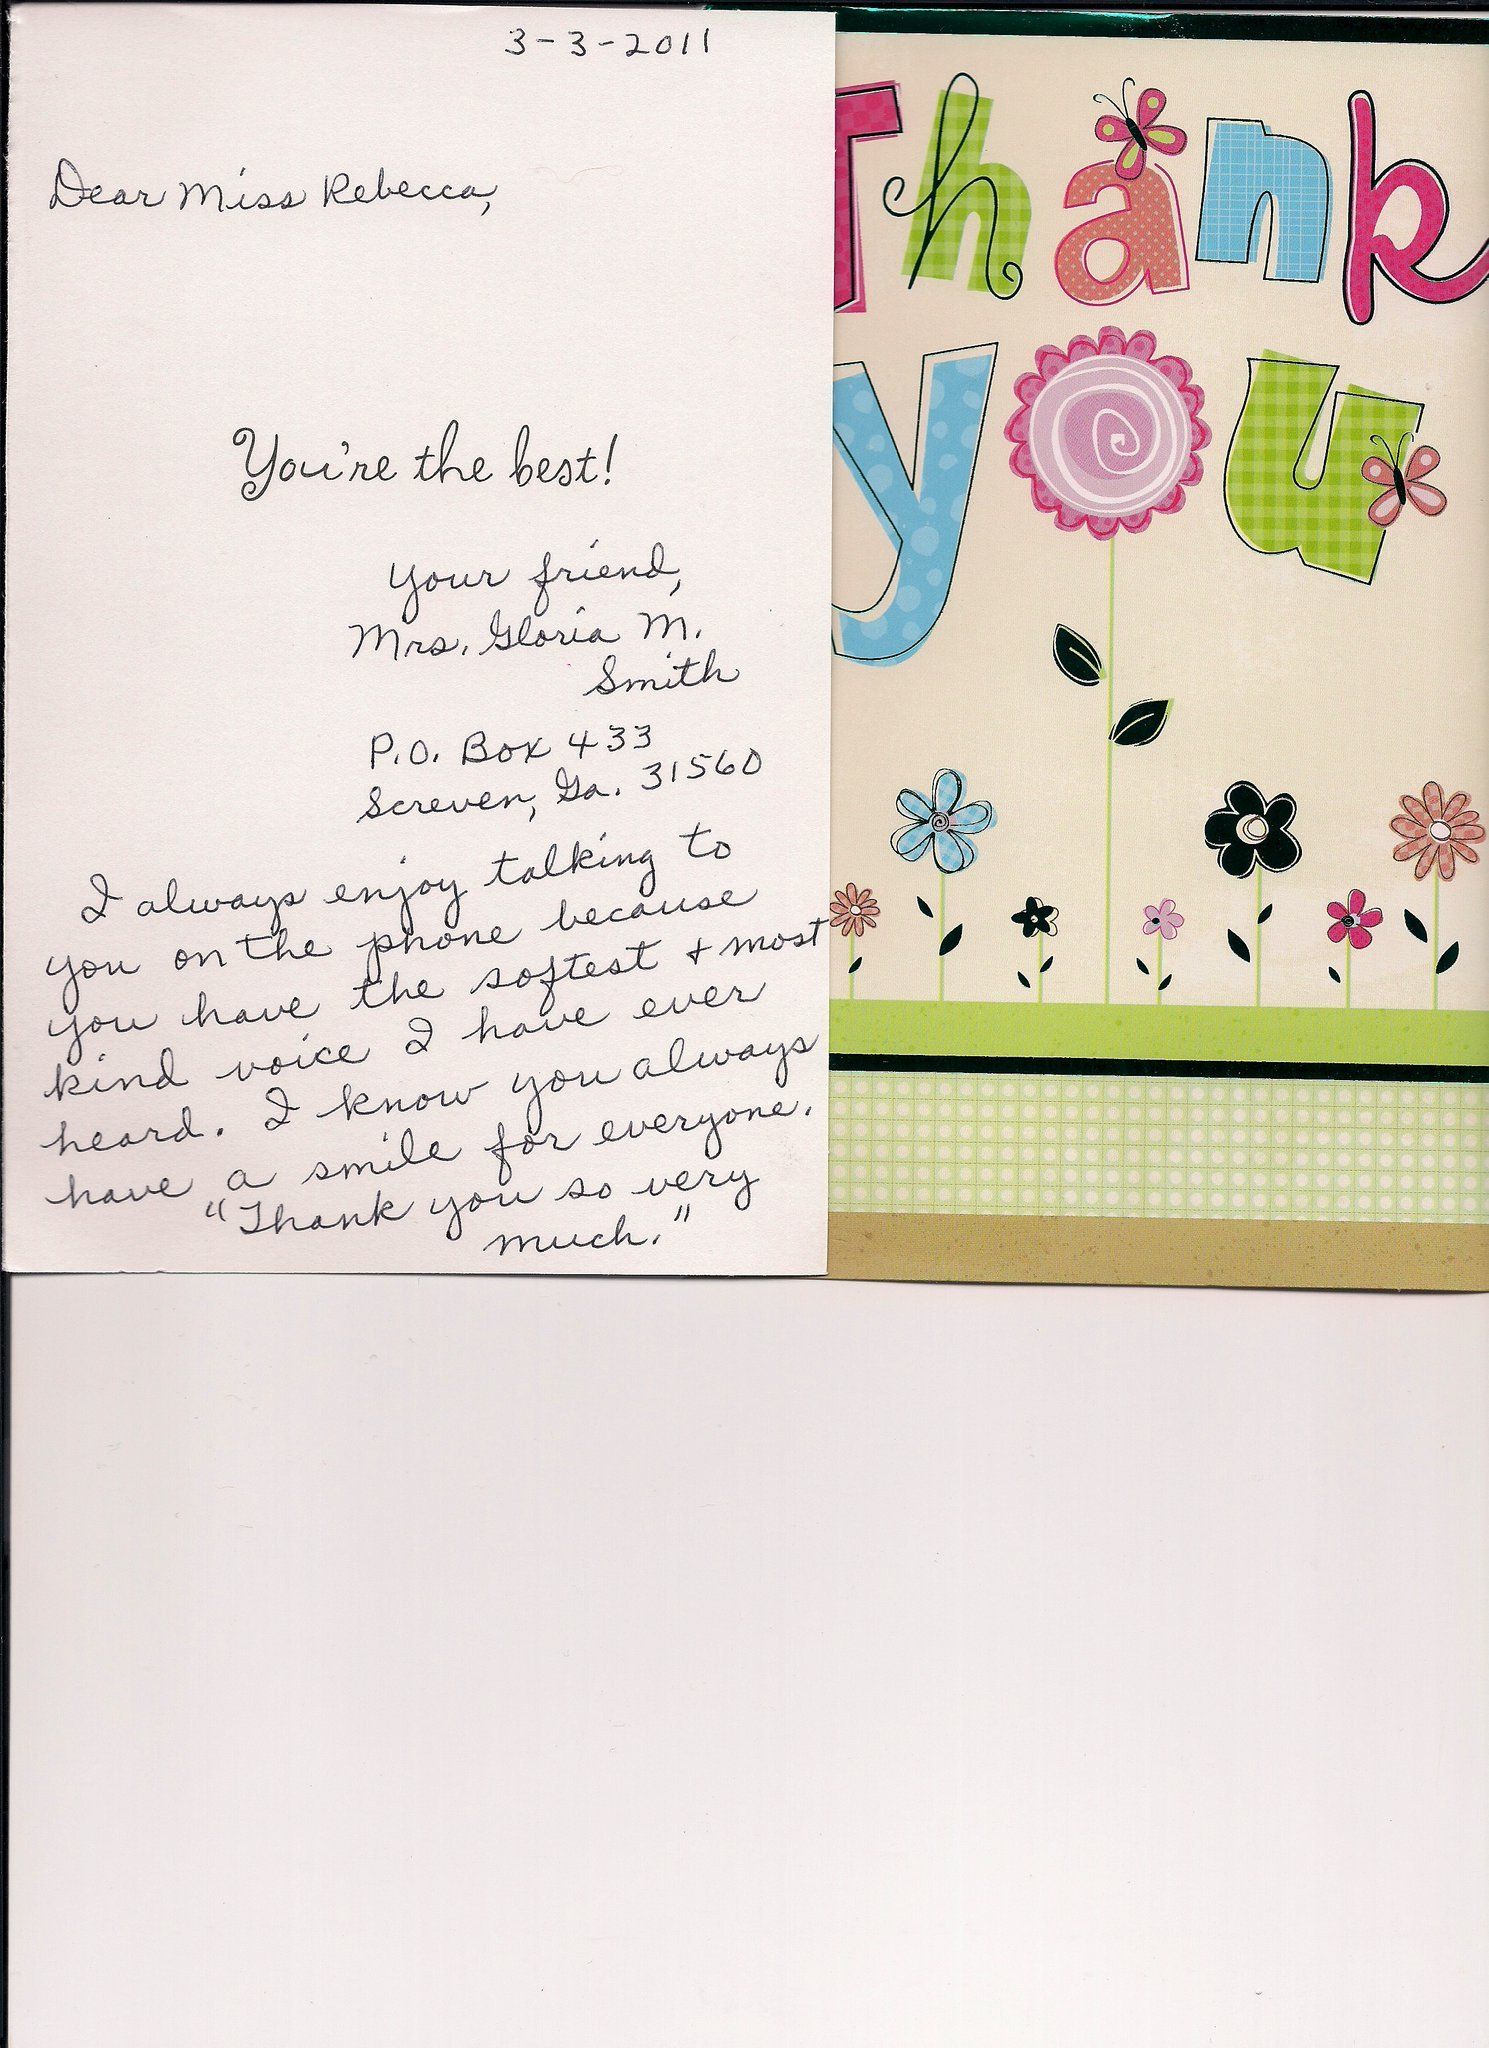 3-3-2011
Dear Miss Rebecca,
You're the best!
Your friend,
Mrs. Gloria M.
Smith
P.O. Box 433
Screven, Ga. 31560
I always enjoy talking to
you on the phone because
you have the softest + most
kind voice I have ever
heard. I know you always
have a smile for everyone.
"Thank you so very
much."
Thank
you